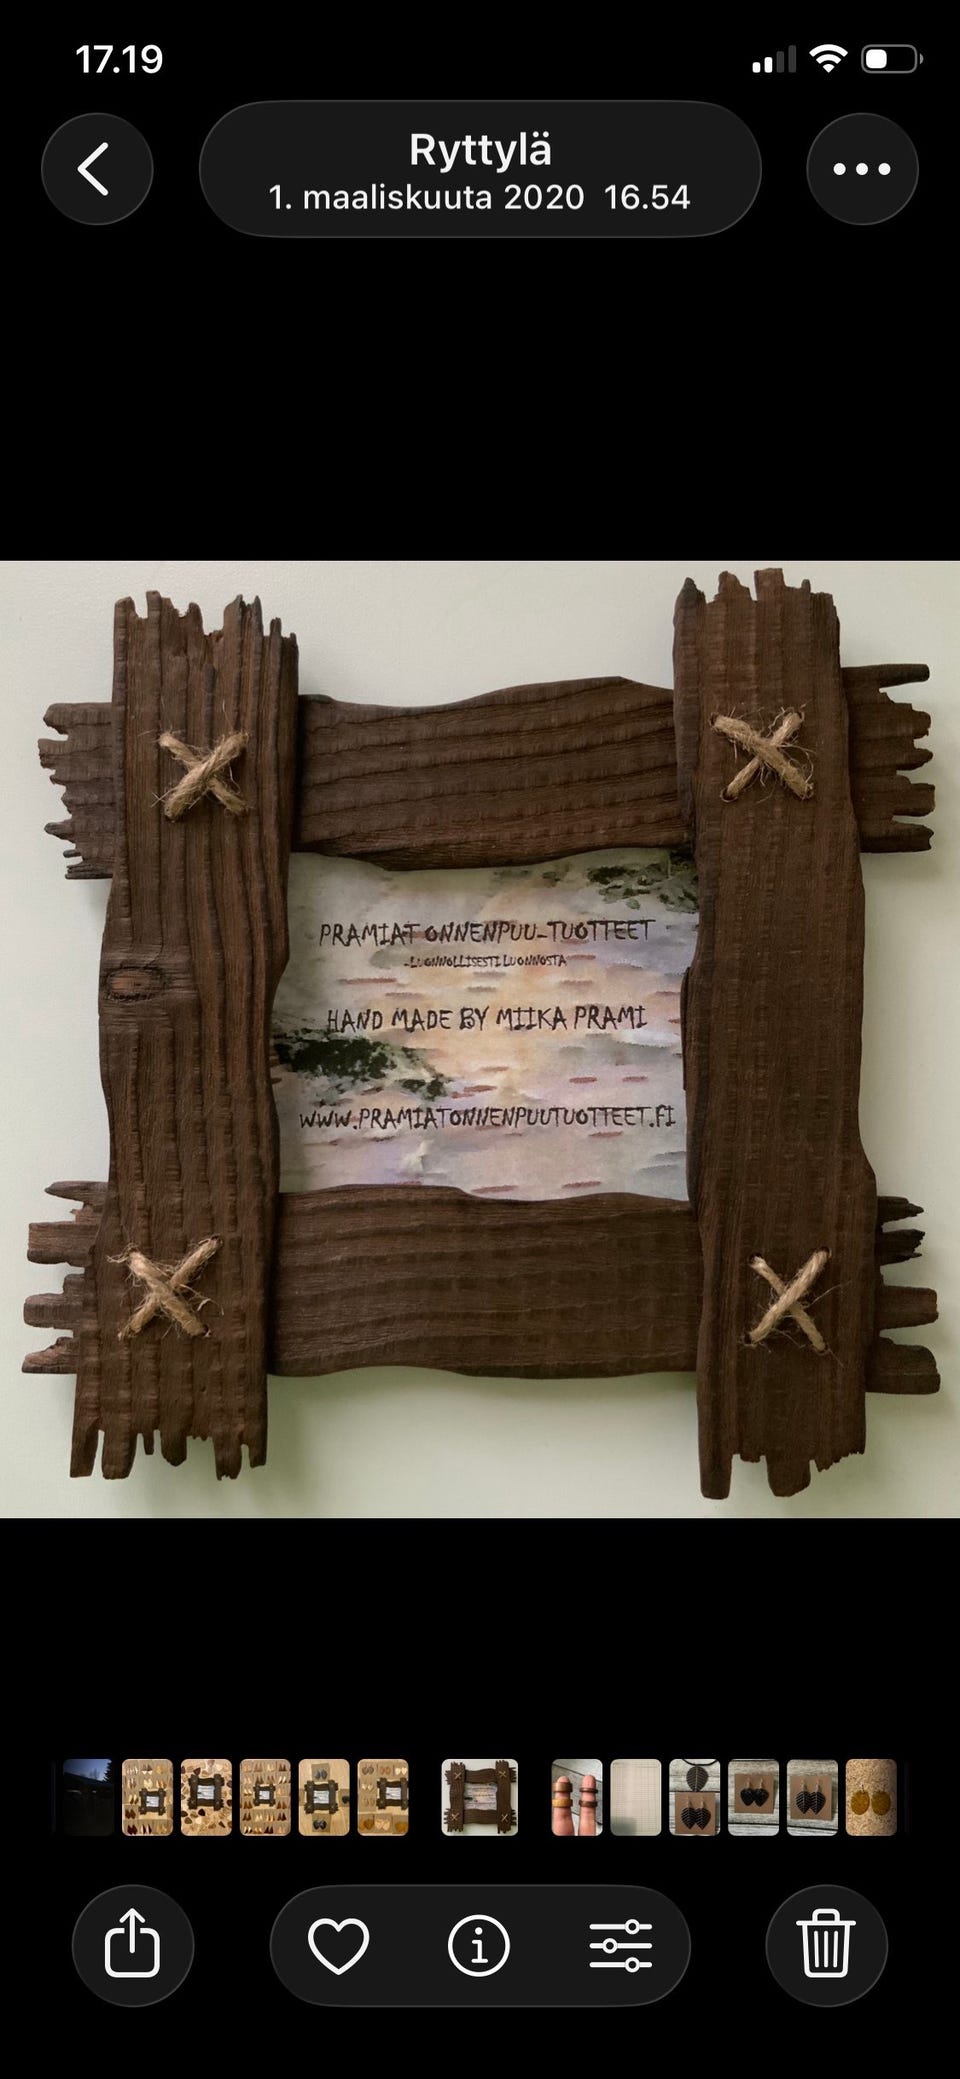 17.19
Ryttylä
1. maaliskuuta 2020 16.54
PRAMIAT ONNENPUU-TUOTTEET
-LUONNOLLISESTI LUONNOSTA
HAND MADE BY MIIKA PRAMI
WWW.PRAMIATONNENPUUTUOTTEET.FI